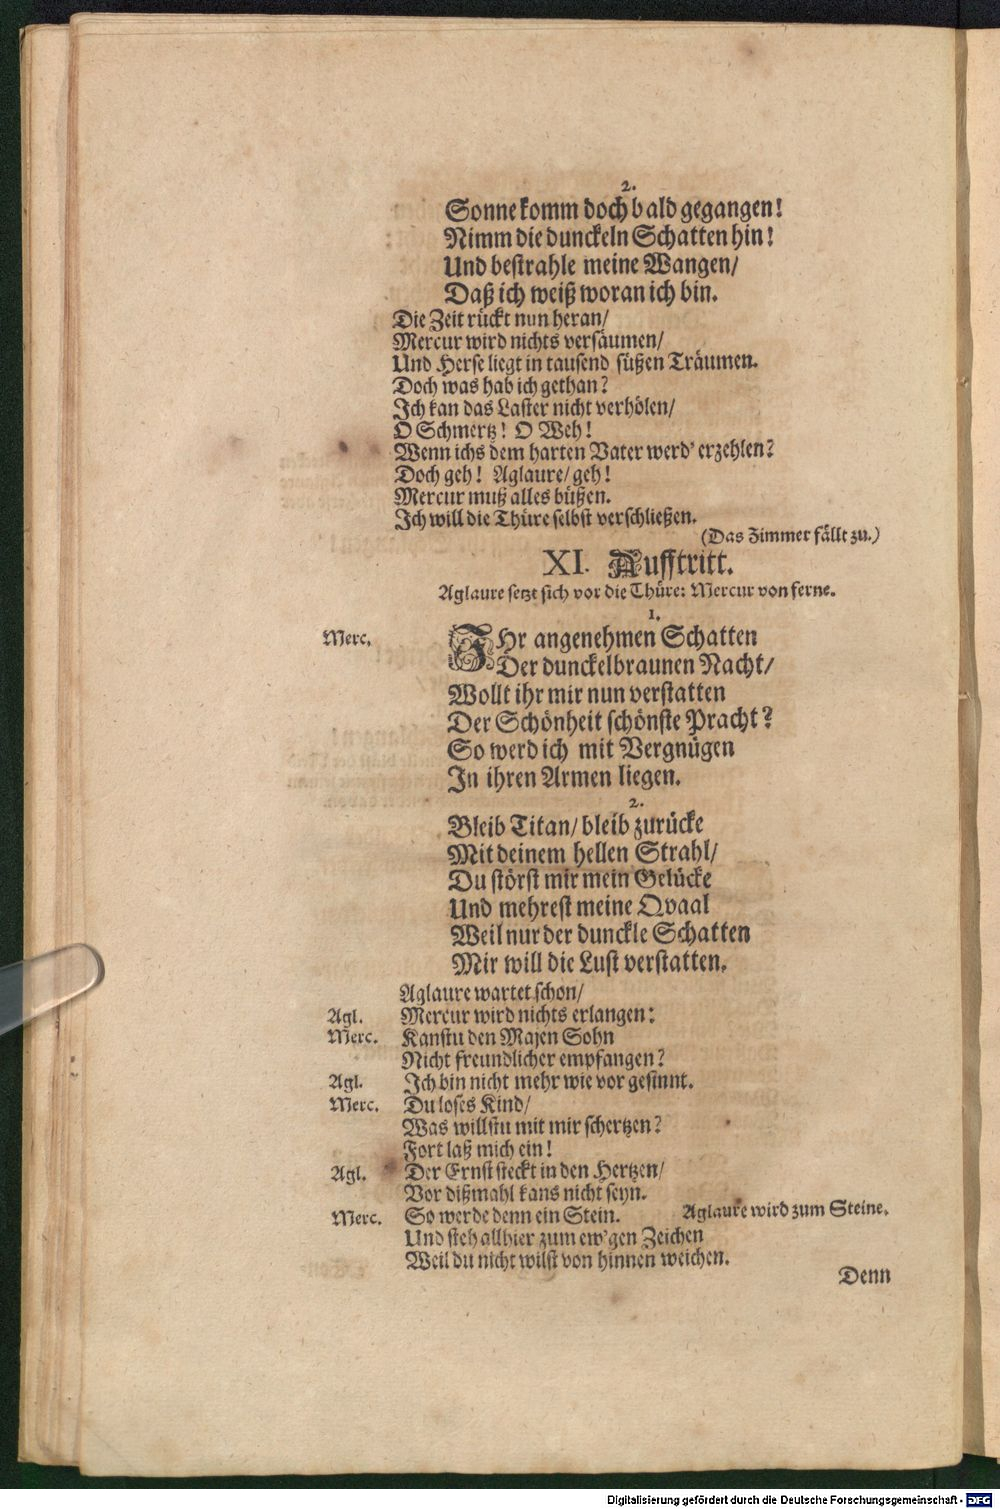 2.
Sonne komm doch bald gegangen!
Nimm die dunckeln Schatten hin!
Und bestrahle meine Wangen/
Daß ich weiß woran ich bin.
Die Zeit rückt nun heran/
Mercur wird nichts versäumen/
Und Herse liegt in tausend süßen Träumen.
Doch was hab ich gethan?
Ich kan das Laster nicht verhölen/
O Schmertz! O Weh!
Wenn ichs dem harten Vater werd' erzehlen?
Doch geh! Aglaure/ geh!
Mercur muß alles büßen.
Ich will die Thüre selbst verschließen.
(Das Zimmer fällt zu.)
XI. Aufftritt.
Aglaure setzt sich vor die Thüre: Mercur von ferne.
1.
Merc. IHr angenehmen Schatten
Der dunckelbraunen Nacht/
Wollt ihr mir nun verstatten
Der Schönheit schönste Pracht?
So werd ich mit Vergnügen
In ihren Armen liegen.
2.
Bleib Titan/ bleib zurücke
Mit deinem hellen Strahl/
Du störst mir mein Gelücke
Und mehrest meine Qvaal
Weil nur der dunckle Schatten
Mir will die Lust verstatten.
Aglaure wartet schon/
Agl. Mercur wird nichts erlangen:
Merc. Kanstu den Majen Sohn
Nicht freundlicher empfangen?
Agl. Ich bin nicht mehr wie vor gesinnt.
Merc. Du loses Kind/
Was willstu mit mir schertzen?
Fort laß mich ein!
Agl. Der Ernst steckt in den Hertzen/
Vor dißmahl kans nicht seyn.
Merc. So werde denn ein Stein. Aglaure wird zum Steine.
Und steh allhier zum ew'gen Zeichen
Weil du nicht wilst von hinnen weichen.
Denn
Digitalisierung gefördert durch die Deutsche Forschungsgemeinschaft - DFG